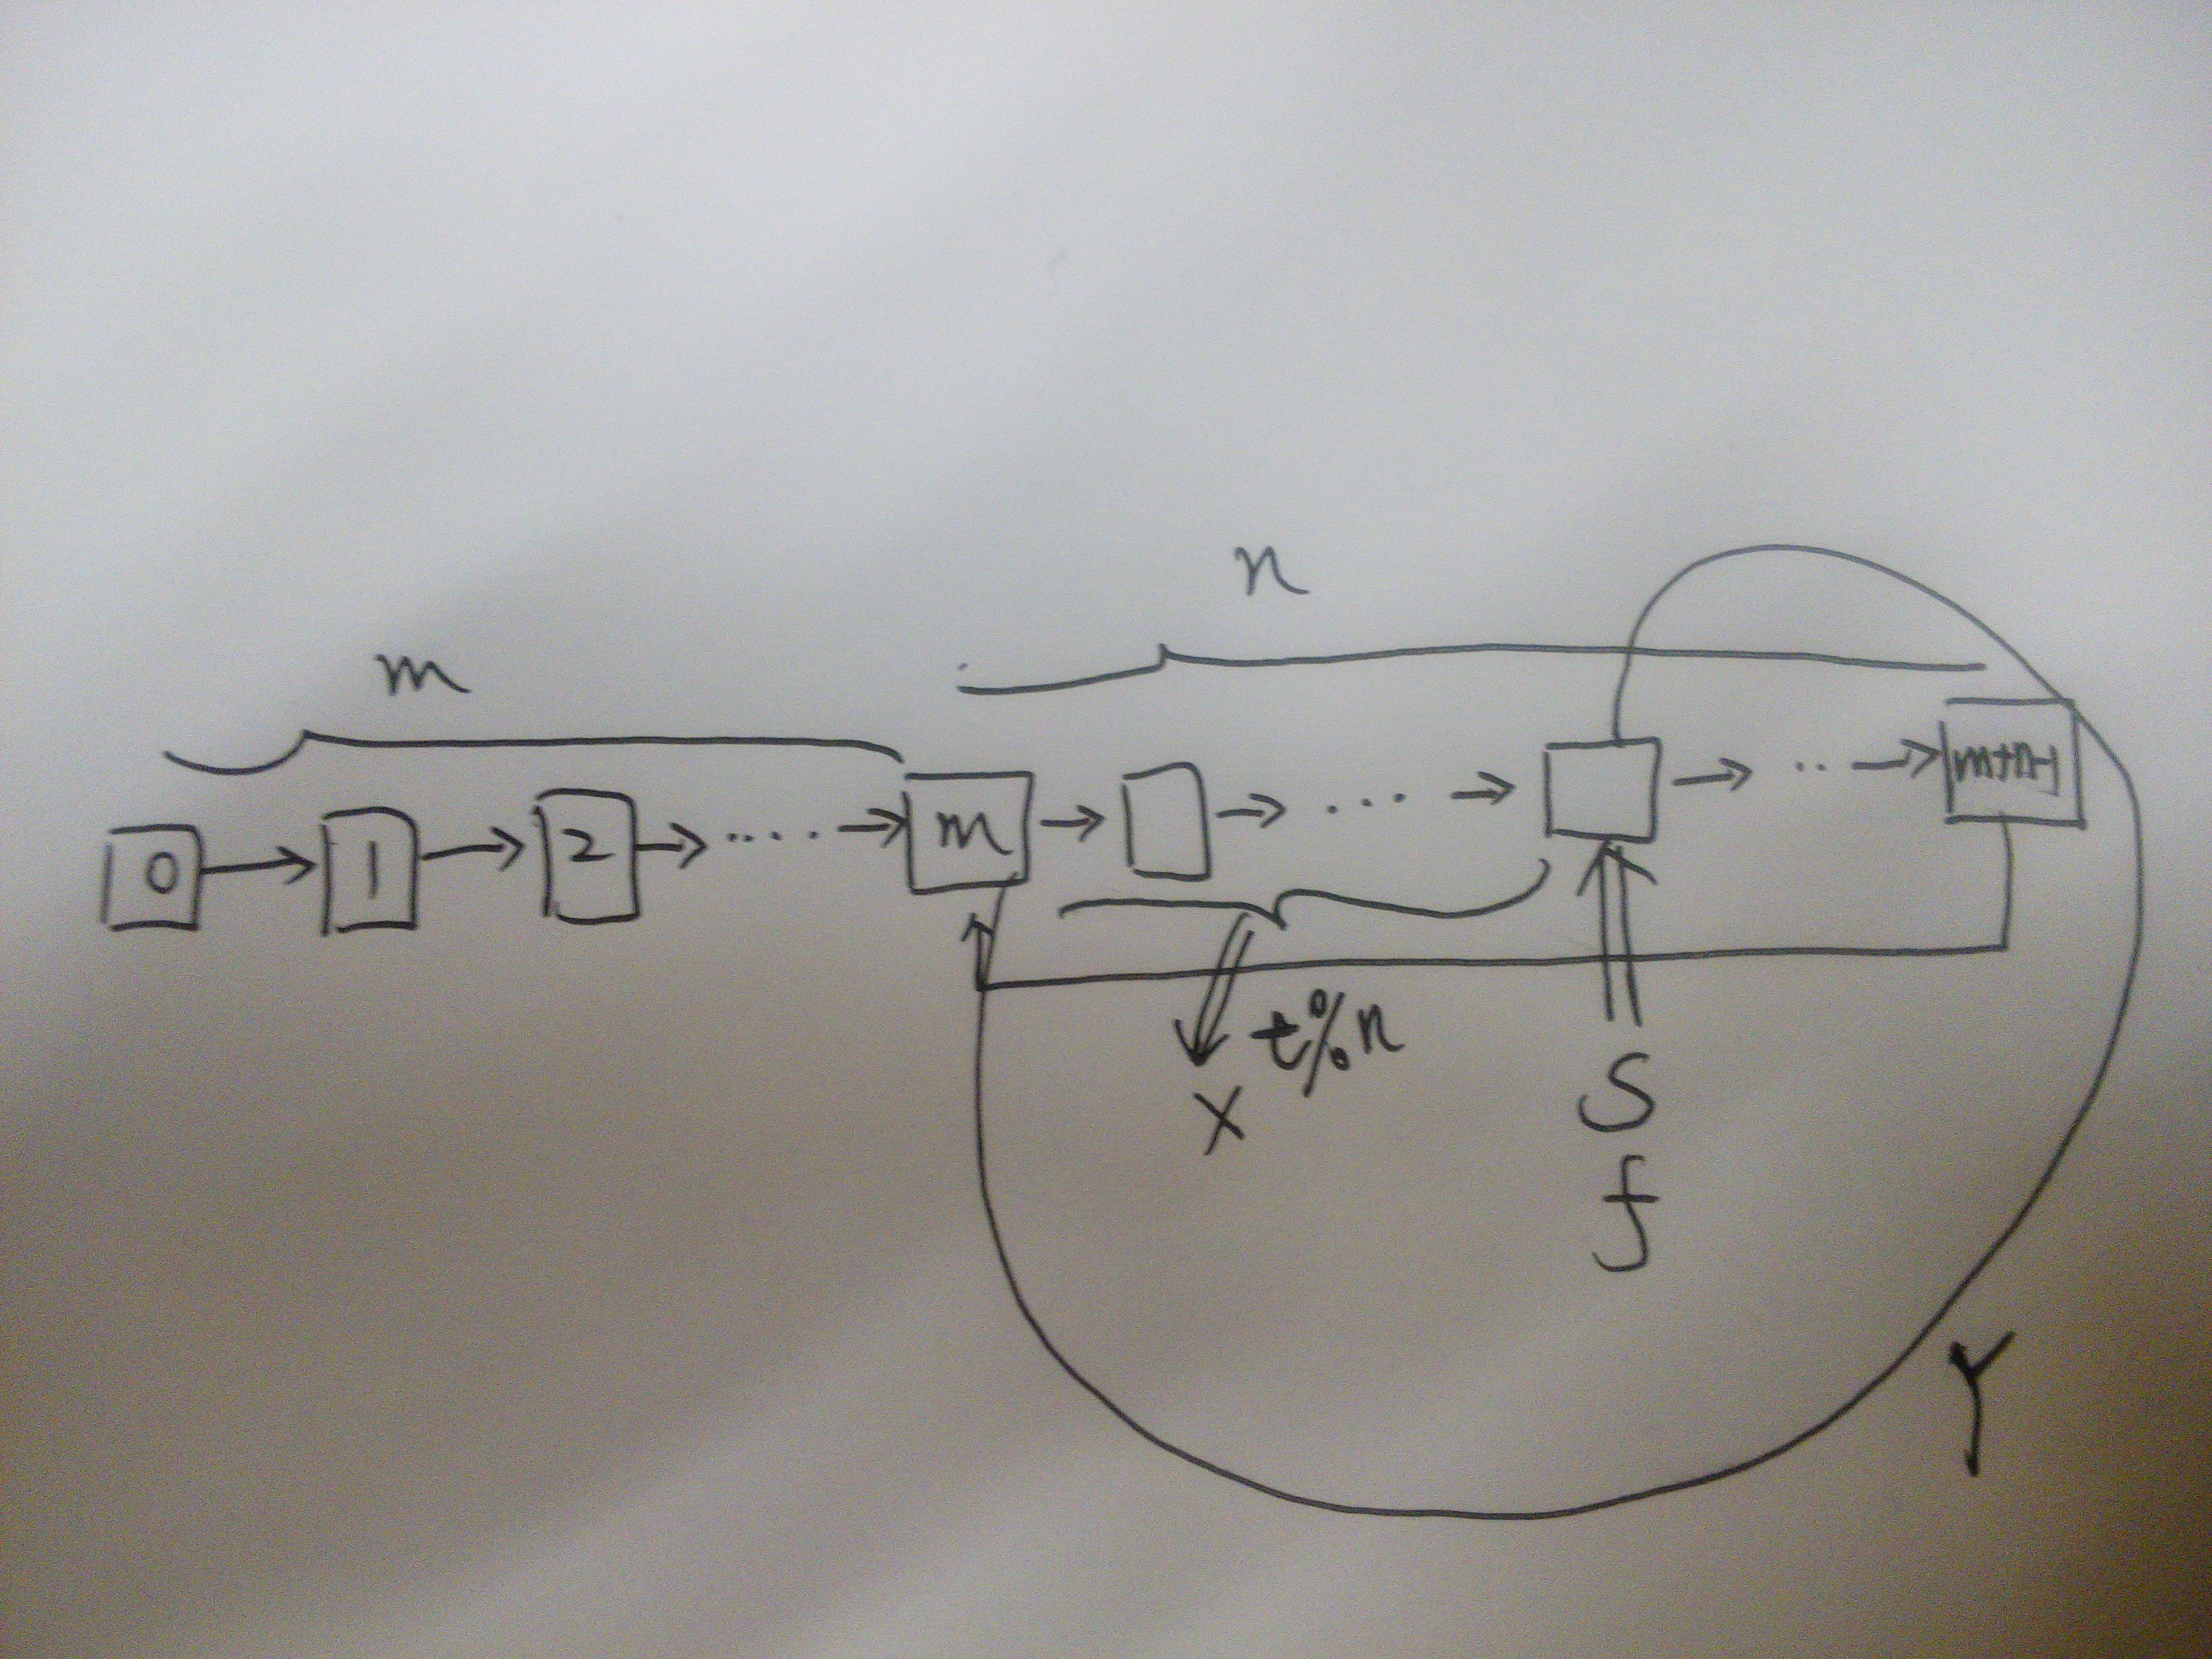 n
m
0 → 1 → 2 → .... → m → → ... → → .. → m+n-1
t%n
X
S
f
Y